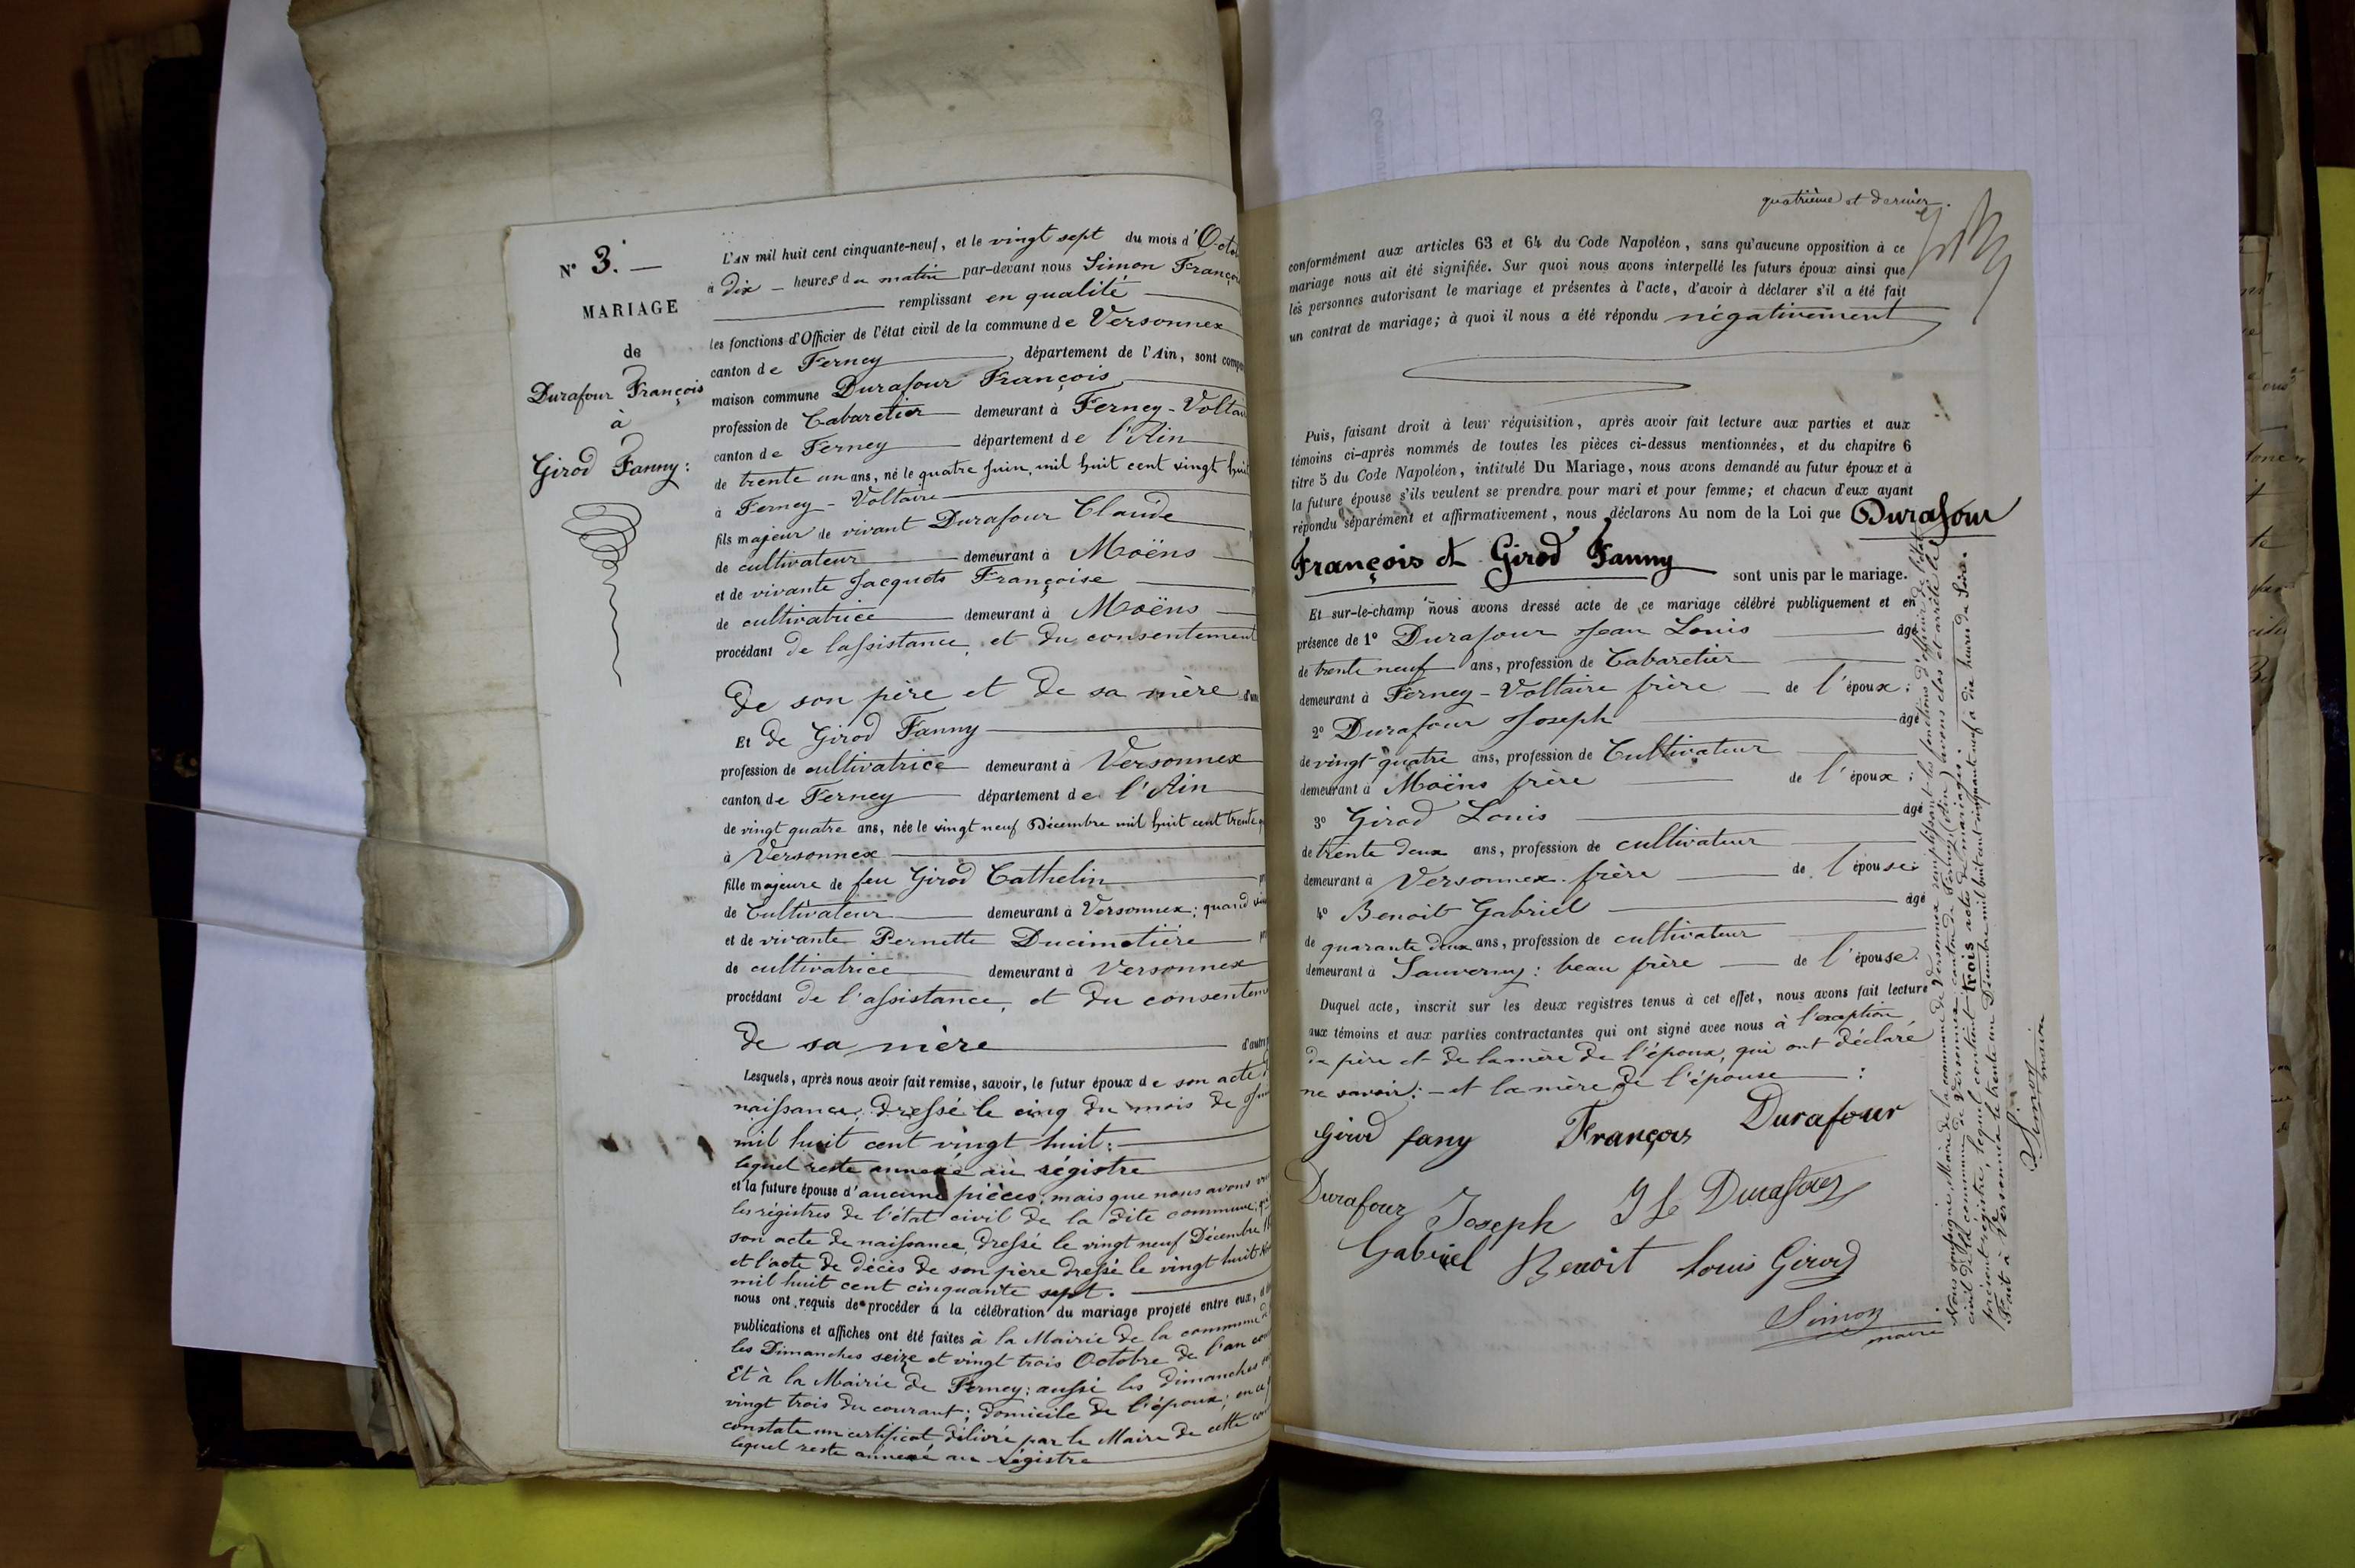 N° 3. —
MARIAGE
de
Durafour François
à
Girod Fanny :
L'AN mil huit cent cinquante-neuf, et le vingt sept du mois d'Octo
à dix — heures du matin par-devant nous Simon Franço
remplissant en qualité
les fonctions d'Officier de l'état civil de la commune de Versonnex
canton de Ferney département de l'Ain, sont comp
maison commune Durafour François
profession de Cabaretier demeurant à Ferney-Voltai
canton de Ferney département de l'Ain
de trente un ans, né le quatre Juin, mil huit cent vingt huit
à Ferney-Voltaire
fils majeur de vivant Durafour Claude
de cultivateur demeurant à Moëns
et de vivante Jacquots Françoise
de cultivatrice demeurant à Moëns
procédant de lassistance, et du consentement
de son père et de sa mère d'une
Et de Girod Fanny
profession de cultivatrice demeurant à Versonnex
canton de Ferney département de l'Ain
de vingt quatre ans, née le vingt neuf Décembre mil huit cent trente
à Versonnex
fille majeure de feu Girod Cathelin
de Cultivateur demeurant à Versonnex ; quand
et de vivante Pernette Ducimetière
de cultivatrice demeurant à Versonnex
procédant de l'assistance, et du consentem
de sa mère d'autre
Lesquels, après nous avoir fait remise, savoir, le futur époux de son acte
naissance, dressé le cinq du mois de
mil huit cent vingt huit :
lequel reste annexé au régistre
et la future épouse d'aucune pièces, mais que nous avons
les régistres de l'état civil de la dite commune,
son acte de naissance, dressé le vingt neuf Décembre
et l'acte de décès de son père dressé le vingt huit
mil huit cent cinquante sept.
nous ont requis de procéder à la célébration du mariage projeté entre eux,
publications et affiches ont été faites à la Mairie de la commune
les Dimanches seize et vingt trois Octobre de l'an
Et à la Mairie de Ferney : aussi les dimanches
vingt trois du courant ; domicile de l'époux ;
constate un certificat délivré par le Maire de cette
lequel reste annexé au régistre
quatrième et dernier.
conformément aux articles 63 et 64 du Code Napoléon, sans qu'aucune opposition à ce
mariage nous ait été signifiée. Sur quoi nous avons interpellé les futurs époux ainsi que
les personnes autorisant le mariage et présentes à l'acte, d'avoir à déclarer s'il a été fait
un contrat de mariage ; à quoi il nous a été répondu négativement
Puis, faisant droit à leur réquisition, après avoir fait lecture aux parties et aux
témoins ci-après nommés de toutes les pièces ci-dessus mentionnées, et du chapitre 6
titre 5 du Code Napoléon, intitulé Du Mariage, nous avons demandé au futur époux et à
la future épouse s'ils veulent se prendre pour mari et pour femme ; et chacun d'eux ayant
répondu séparément et affirmativement, nous déclarons Au nom de la Loi que Durafour
François et Girod Fanny sont unis par le mariage.
Et sur-le-champ nous avons dressé acte de ce mariage célébré publiquement et en
présence de 1° Durafour Jean Louis âgé
de trente neuf ans, profession de Cabaretier
demeurant à Ferney-Voltaire frère — de l'époux :
2° Durafour Joseph âgé
de vingt quatre ans, profession de Cultivateur
demeurant à Moëns frère de l'époux :
3° Girod Louis âgé
de trente deux ans, profession de cultivateur
demeurant à Versonnex frère de l'épouse :
4° Benoit Gabriel âgé
de quarante deux ans, profession de cultivateur
demeurant à Sauverny : beau frère — de l'épouse.
Duquel acte, inscrit sur les deux registres tenus à cet effet, nous avons fait lecture
aux témoins et aux parties contractantes qui ont signé avec nous à l'exception
du père et de la mère de l'époux, qui ont déclaré
ne savoir : — et la mère de l'épouse :
Girod fany François Durafour
Durafour Joseph J L Durafour
Gabriel Benoit Louis Girod
Simon
maire
Nous soussigné, Maire de la commune de Versonnex remplissant les fonctions d'officier de l'état
civil de la commune de Versonnex canton de Ferney (Ain) avons clos et arrêté le
présent registre, lequel contient trois actes de mariages.
Fait à Versonnex le trente un Décembre mil huit cent cinquante neuf à dix heures du Soir.
Simon
maire